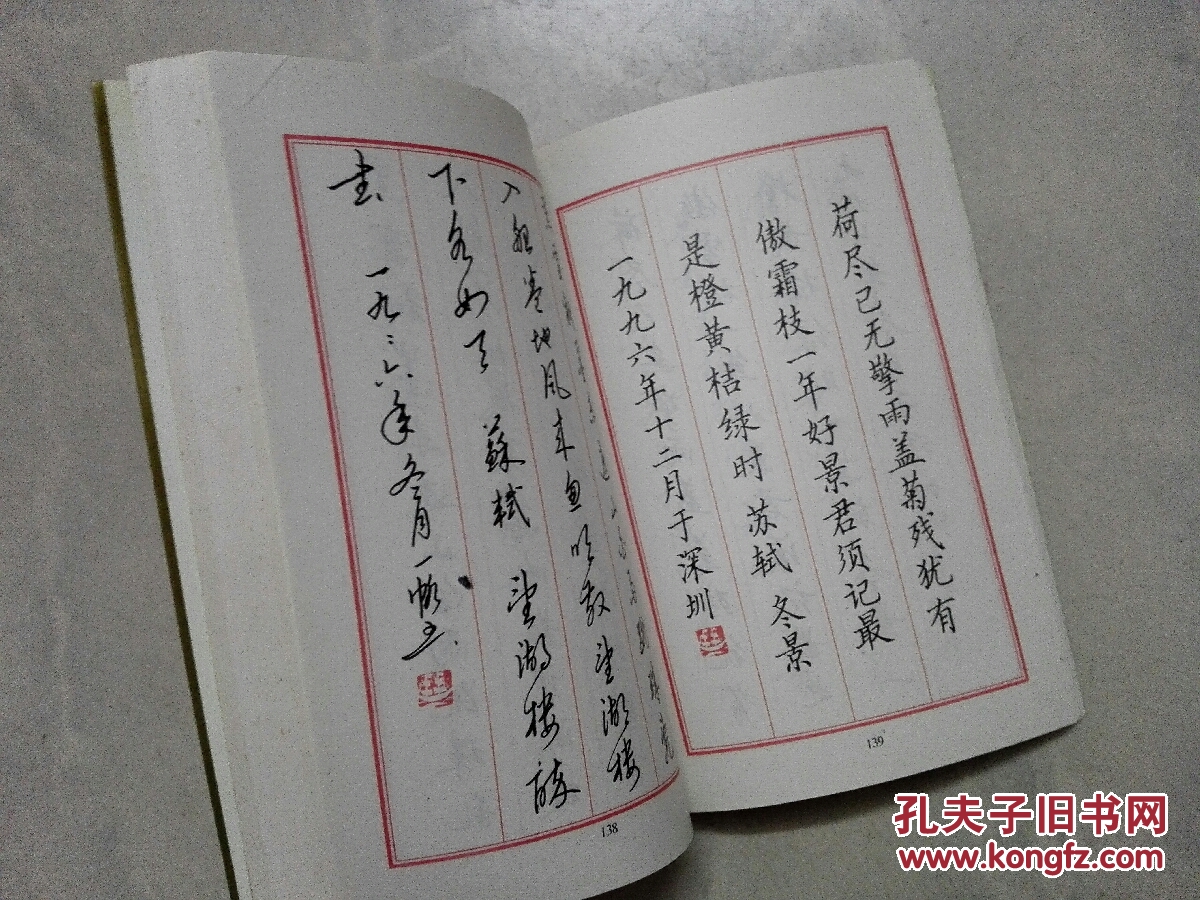 入船卷地风来忽吹散望湖楼
下水如天 蘇轼 望湖楼醉
书 一九九六年冬月
138
荷尽已无擎雨盖菊残犹有
傲霜枝一年好景君须记最
是橙黄桔绿时 苏轼 冬景
一九九六年十二月于深圳
139
孔夫子旧书网
www.kongfz.com